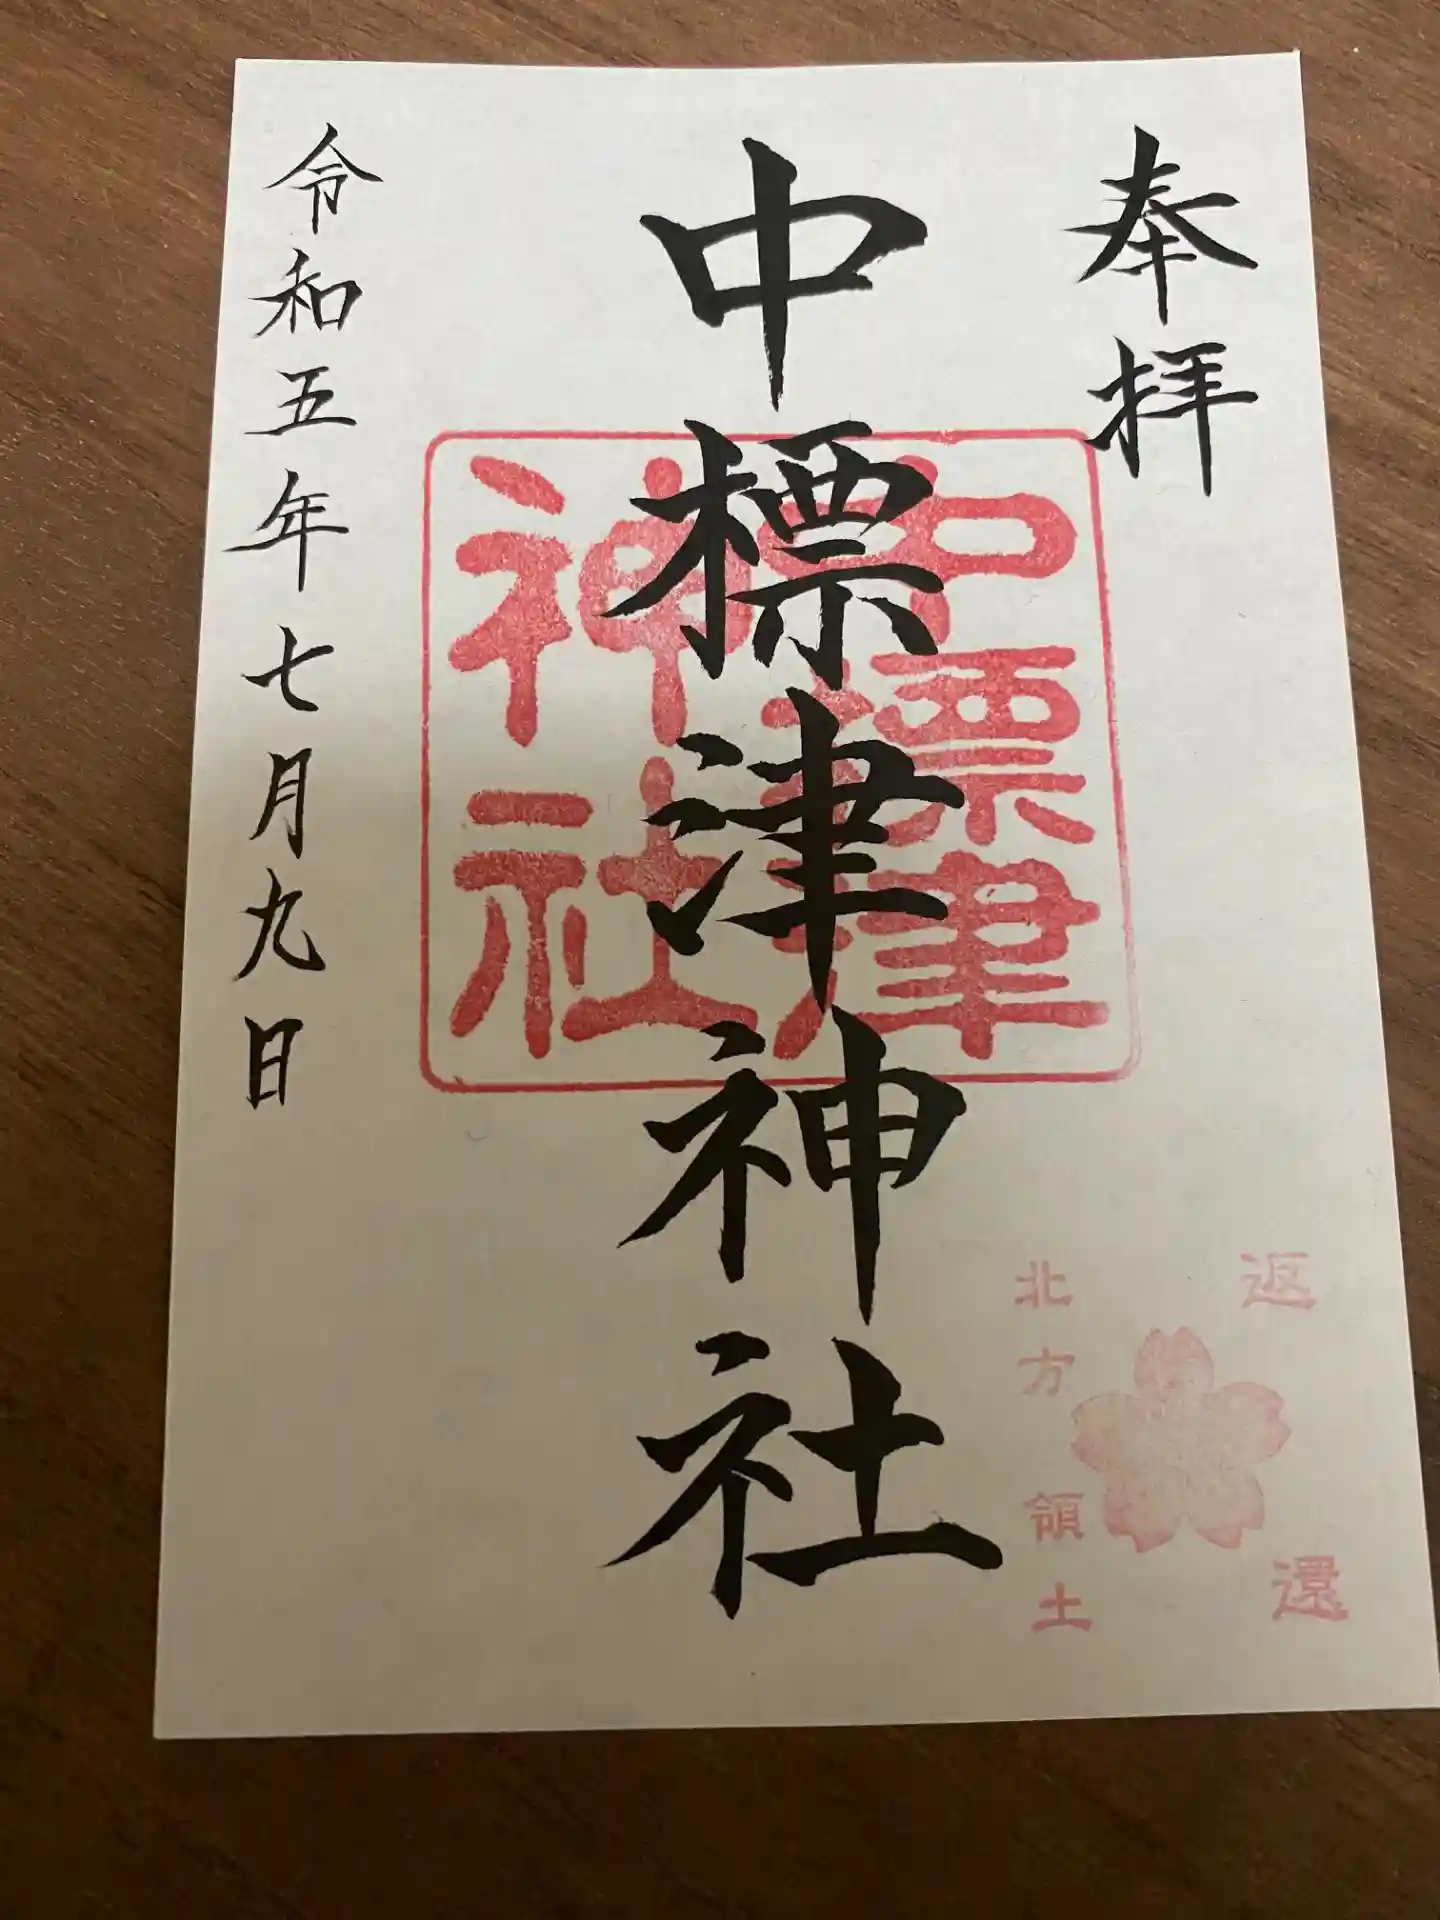 奉拝
中標津神社
中標津
神社
令和五年七月九日
返還
北方領土